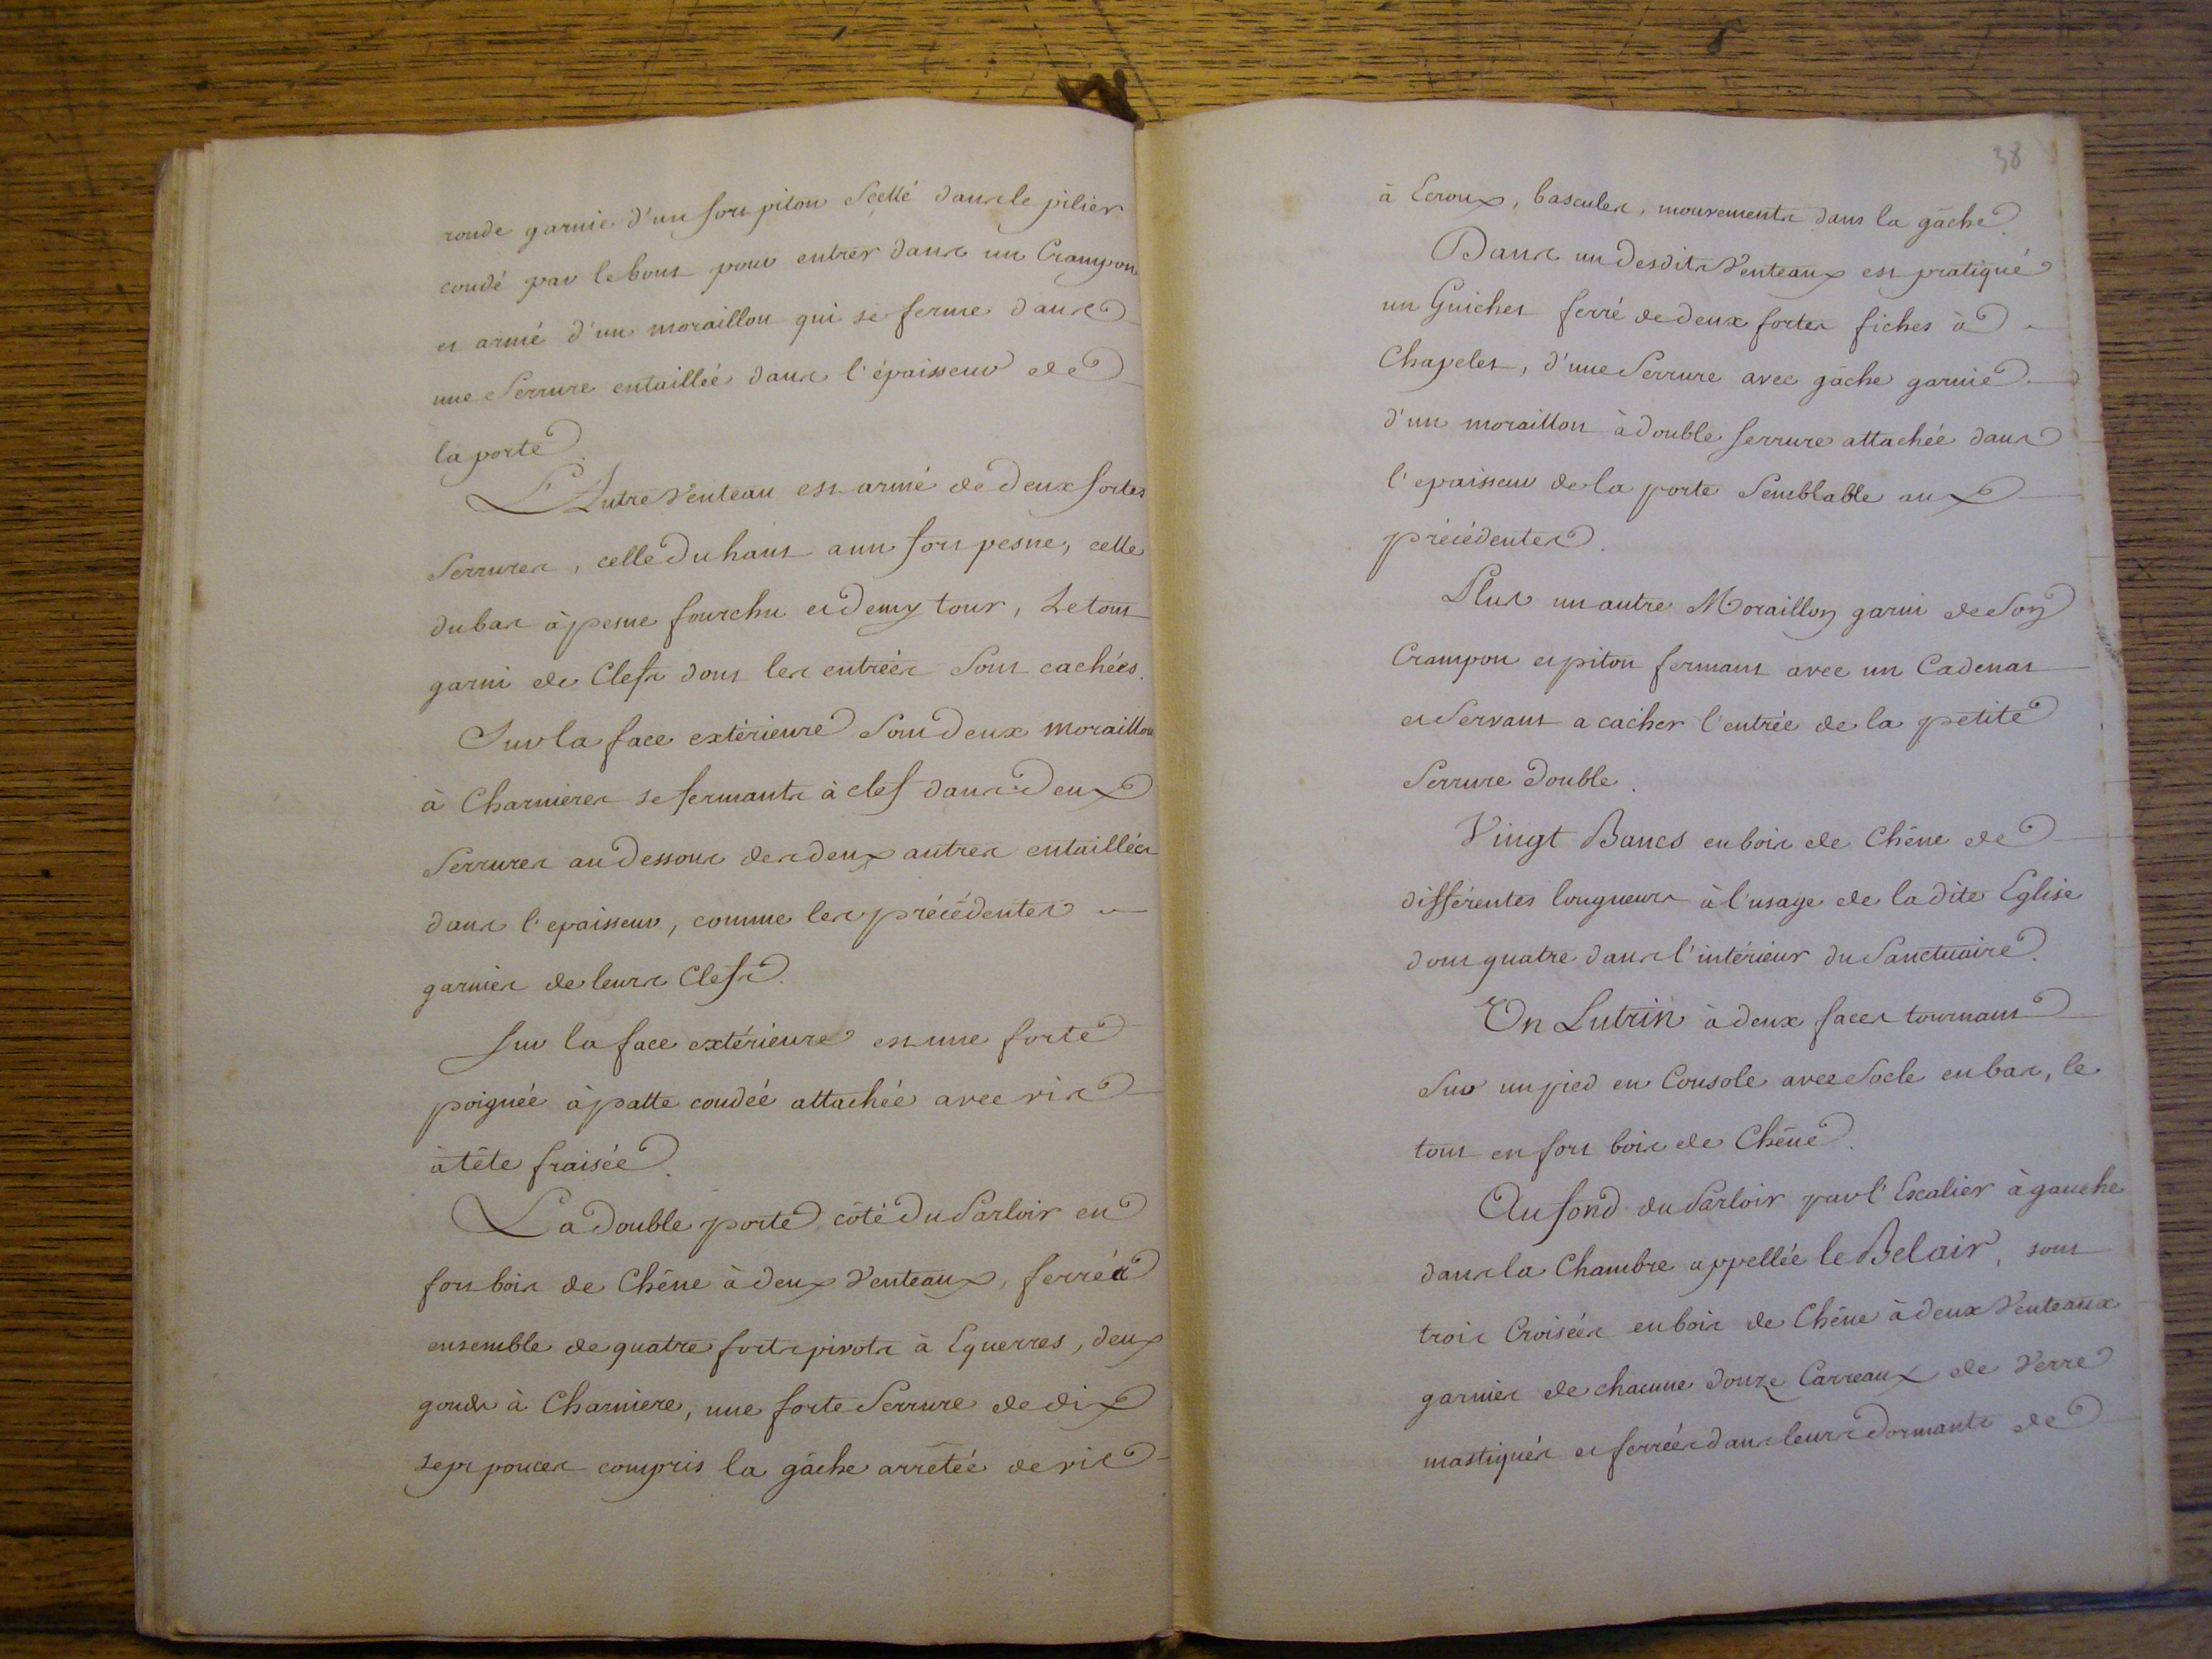 ronde garnie d'un fort piton Scellé dans le pilier
coudé par le bout pour entrer dans un Crampon
et armé d'un moraillon qui se ferme dans
une Serrure entaillée dans l'épaisseur de
la porte.
L'Autre Venteau est armé de deux fortes
Serrures, celle du haut a un fort pesne, celle
du bas à pesne fourchu et demy tour, Le tout
garni de Clefs dont les entrées Sont cachées.
Sur la face extérieure Sont deux moraillon
à Charnieres se fermants à clef dans deux
Serrures au dessous des deux autres entaillées
dans l'epaisseur, comme les précédentes
garnies de leurs Clefs.
Sur la face extérieure est une forte
poignée à patte coudée attachée avec vis
à tête fraisée.
La double porte côté du Parloir en
fort bois de Chêne à deux Venteaux, ferrée
ensemble de quatre forts pivots à Equerres, deux
gonds à Charniere, une forte Serrure de dix
sept pouces compris la gâche arrêtée de vis
38
à Ecroux, bascules, mouvements dans la gâche.
Dans un desdits Venteaux est pratiqué
un Guichet ferré de deux fortes fiches à
Chapelet, d'une Serrure avec gâche garnie
d'un moraillon à double serrure attachée dans
l'epaisseur de la porte Semblable aux
précédentes.
Plus un autre Moraillon garni de Son
Crampon et piton fermant avec un Cadenat
et Servant a cacher l'entrée de la petite
Serrure double.
Vingt Bancs en bois de Chêne de
différentes longueurs à l'usage de la dite Eglise
dont quatre dans l'intérieur du Sanctuaire.
Un Lutrin à deux faces tournant
Sur un pied en Console avec Socle en bas, le
tout en fort bois de Chêne.
Au fond du Parloir par l'Escalier à gauche
dans la Chambre appellée le Belair, sont
trois Croisées en bois de Chêne à deux Venteaux
garnies de chacune douze Carreaux de Verre
mastiqués et ferrées dans leurs dormants de